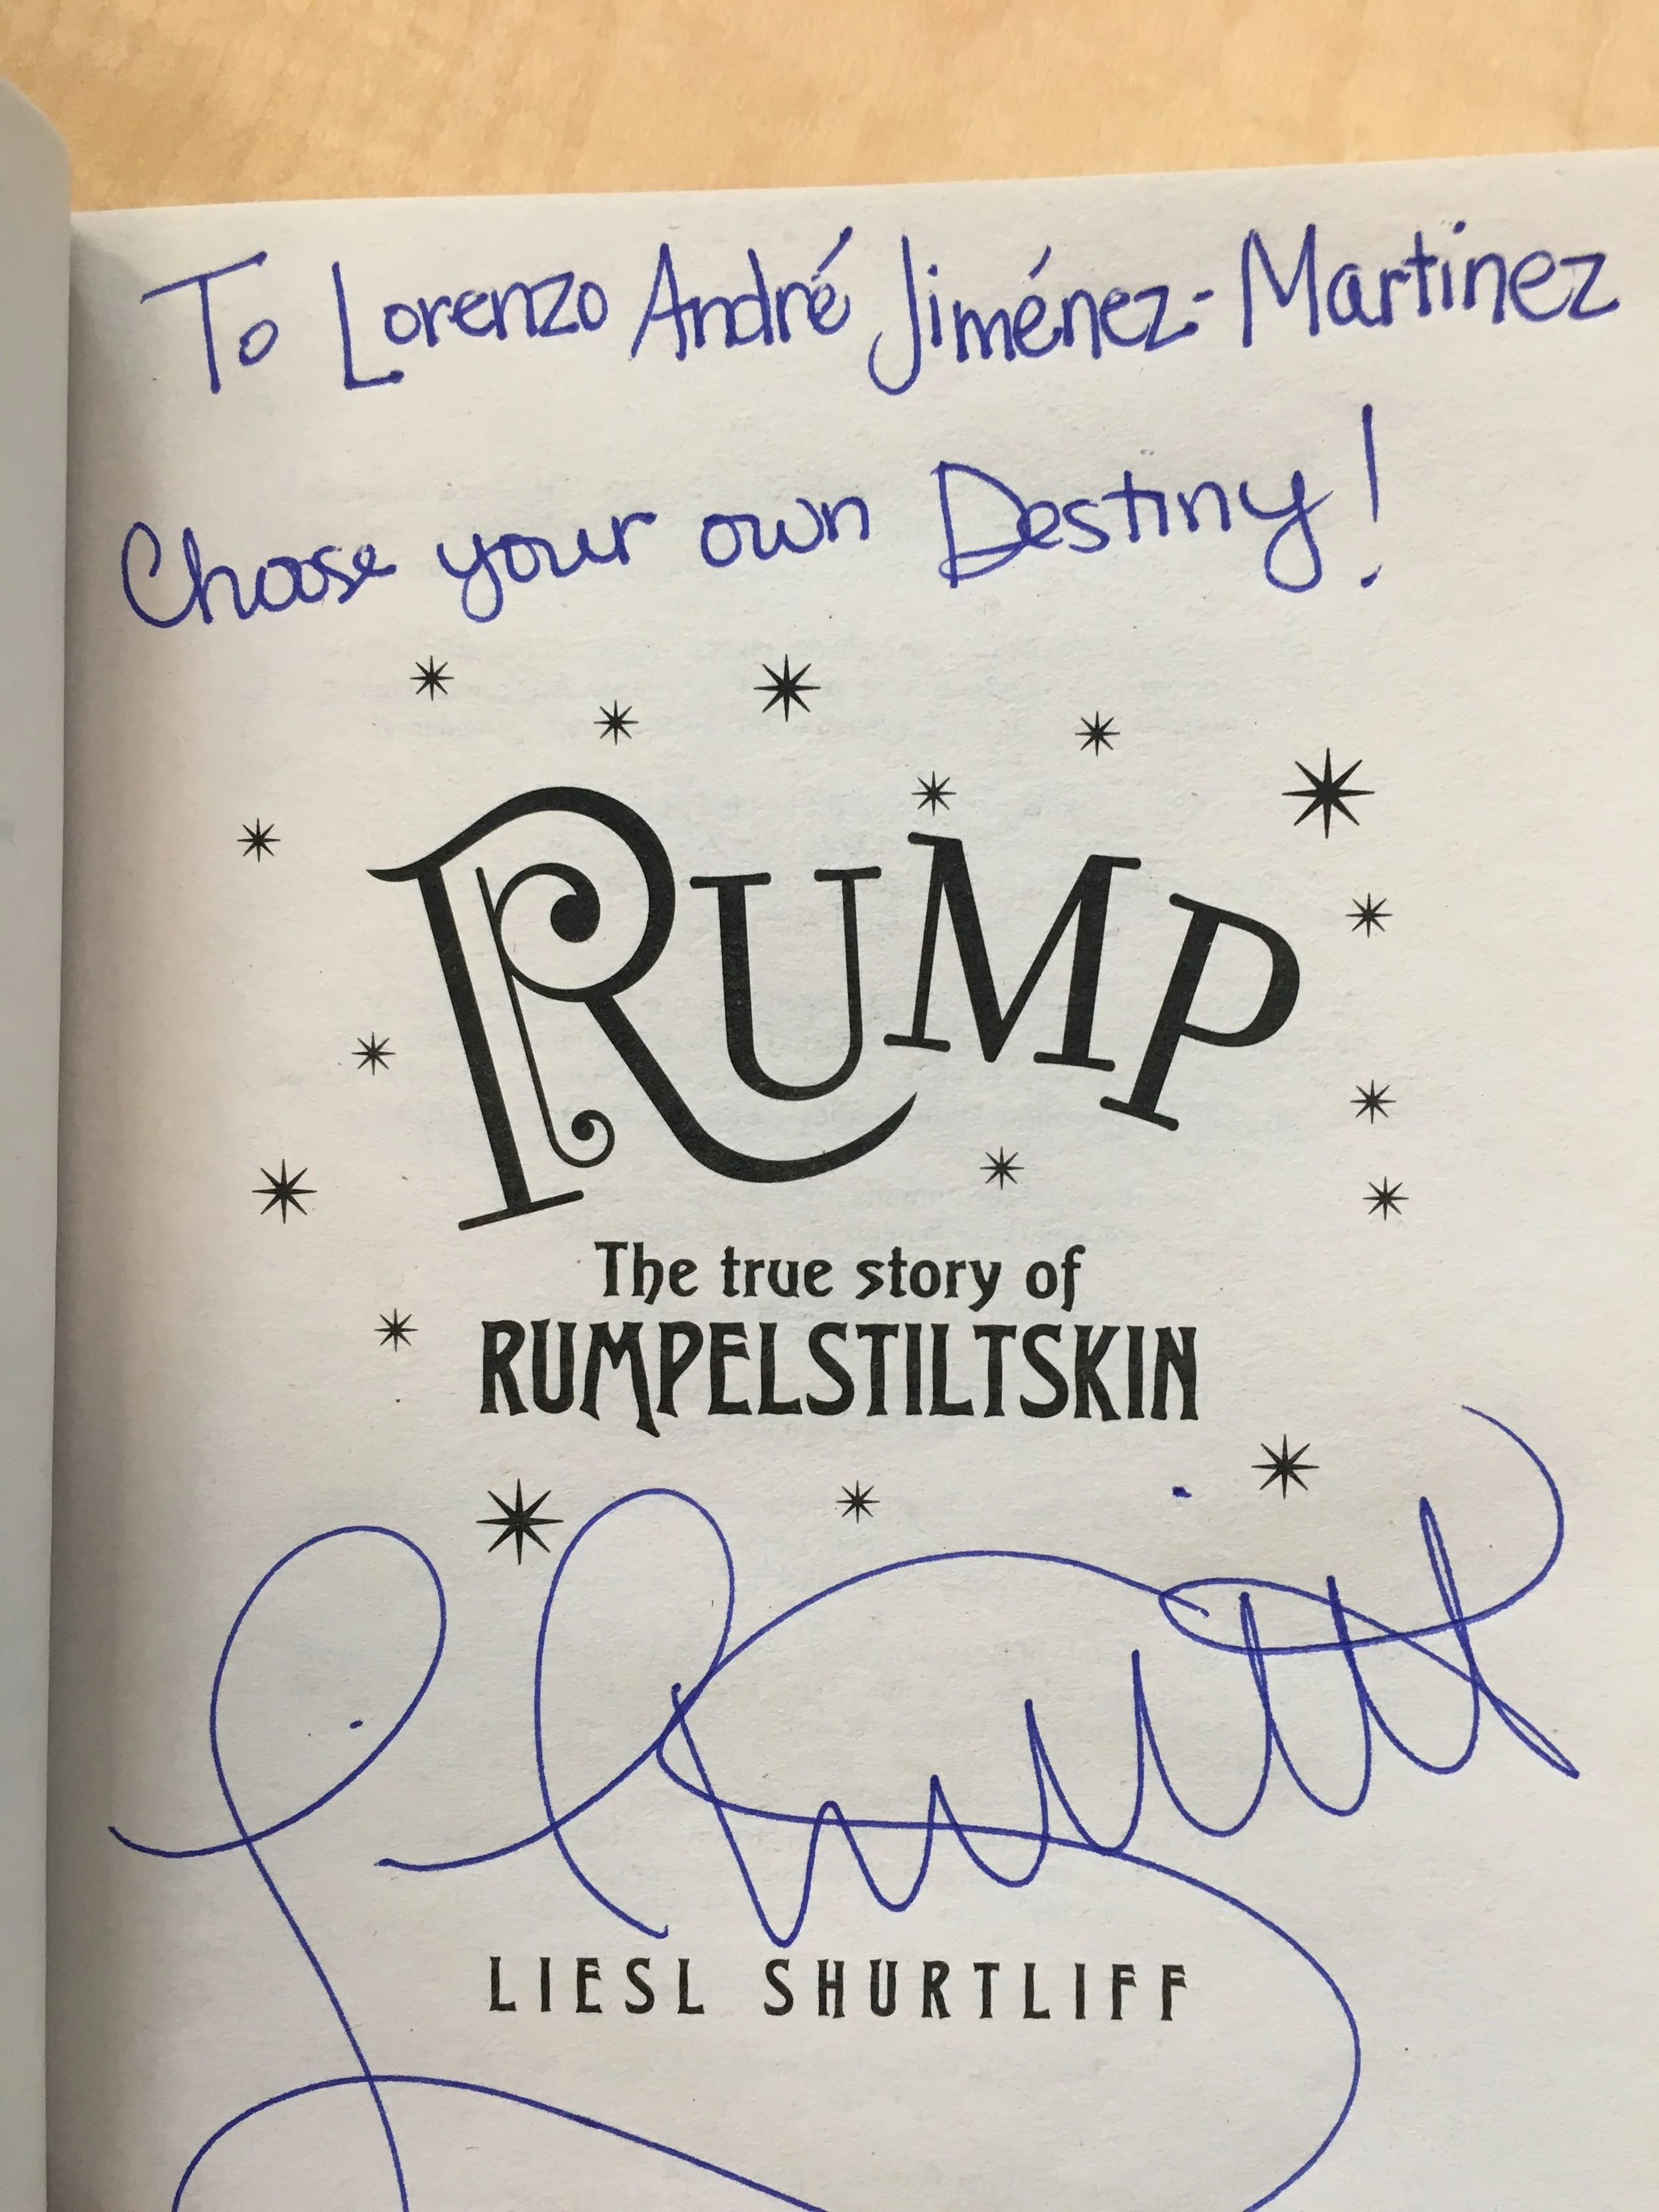 To Lorenzo André Jiménez-Martinez
Choose your own Destiny!
RUMP
The true story of
RUMPELSTILTSKIN
LIESL SHURTLIFF